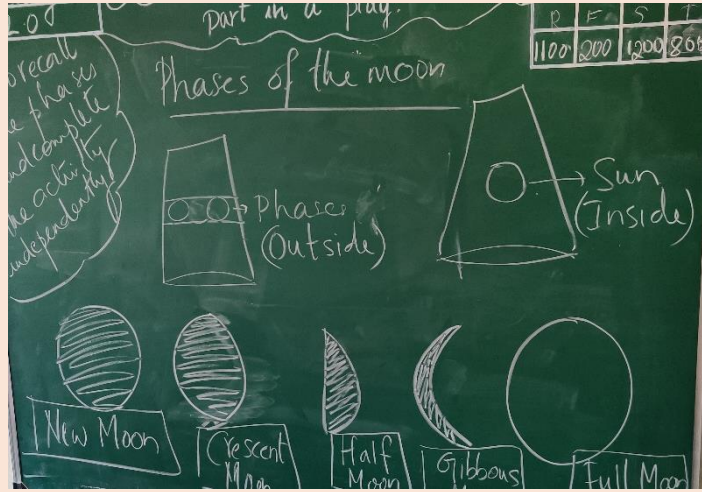 part in a play.
R F S T
1100 200 1200 800
recall
phases
and complete
the activity
independently
Phases of the moon
Phases
(Outside)
Sun
(Inside)
New Moon
Crescent
Moon
Half
Moon
Gibbous
Full Moon